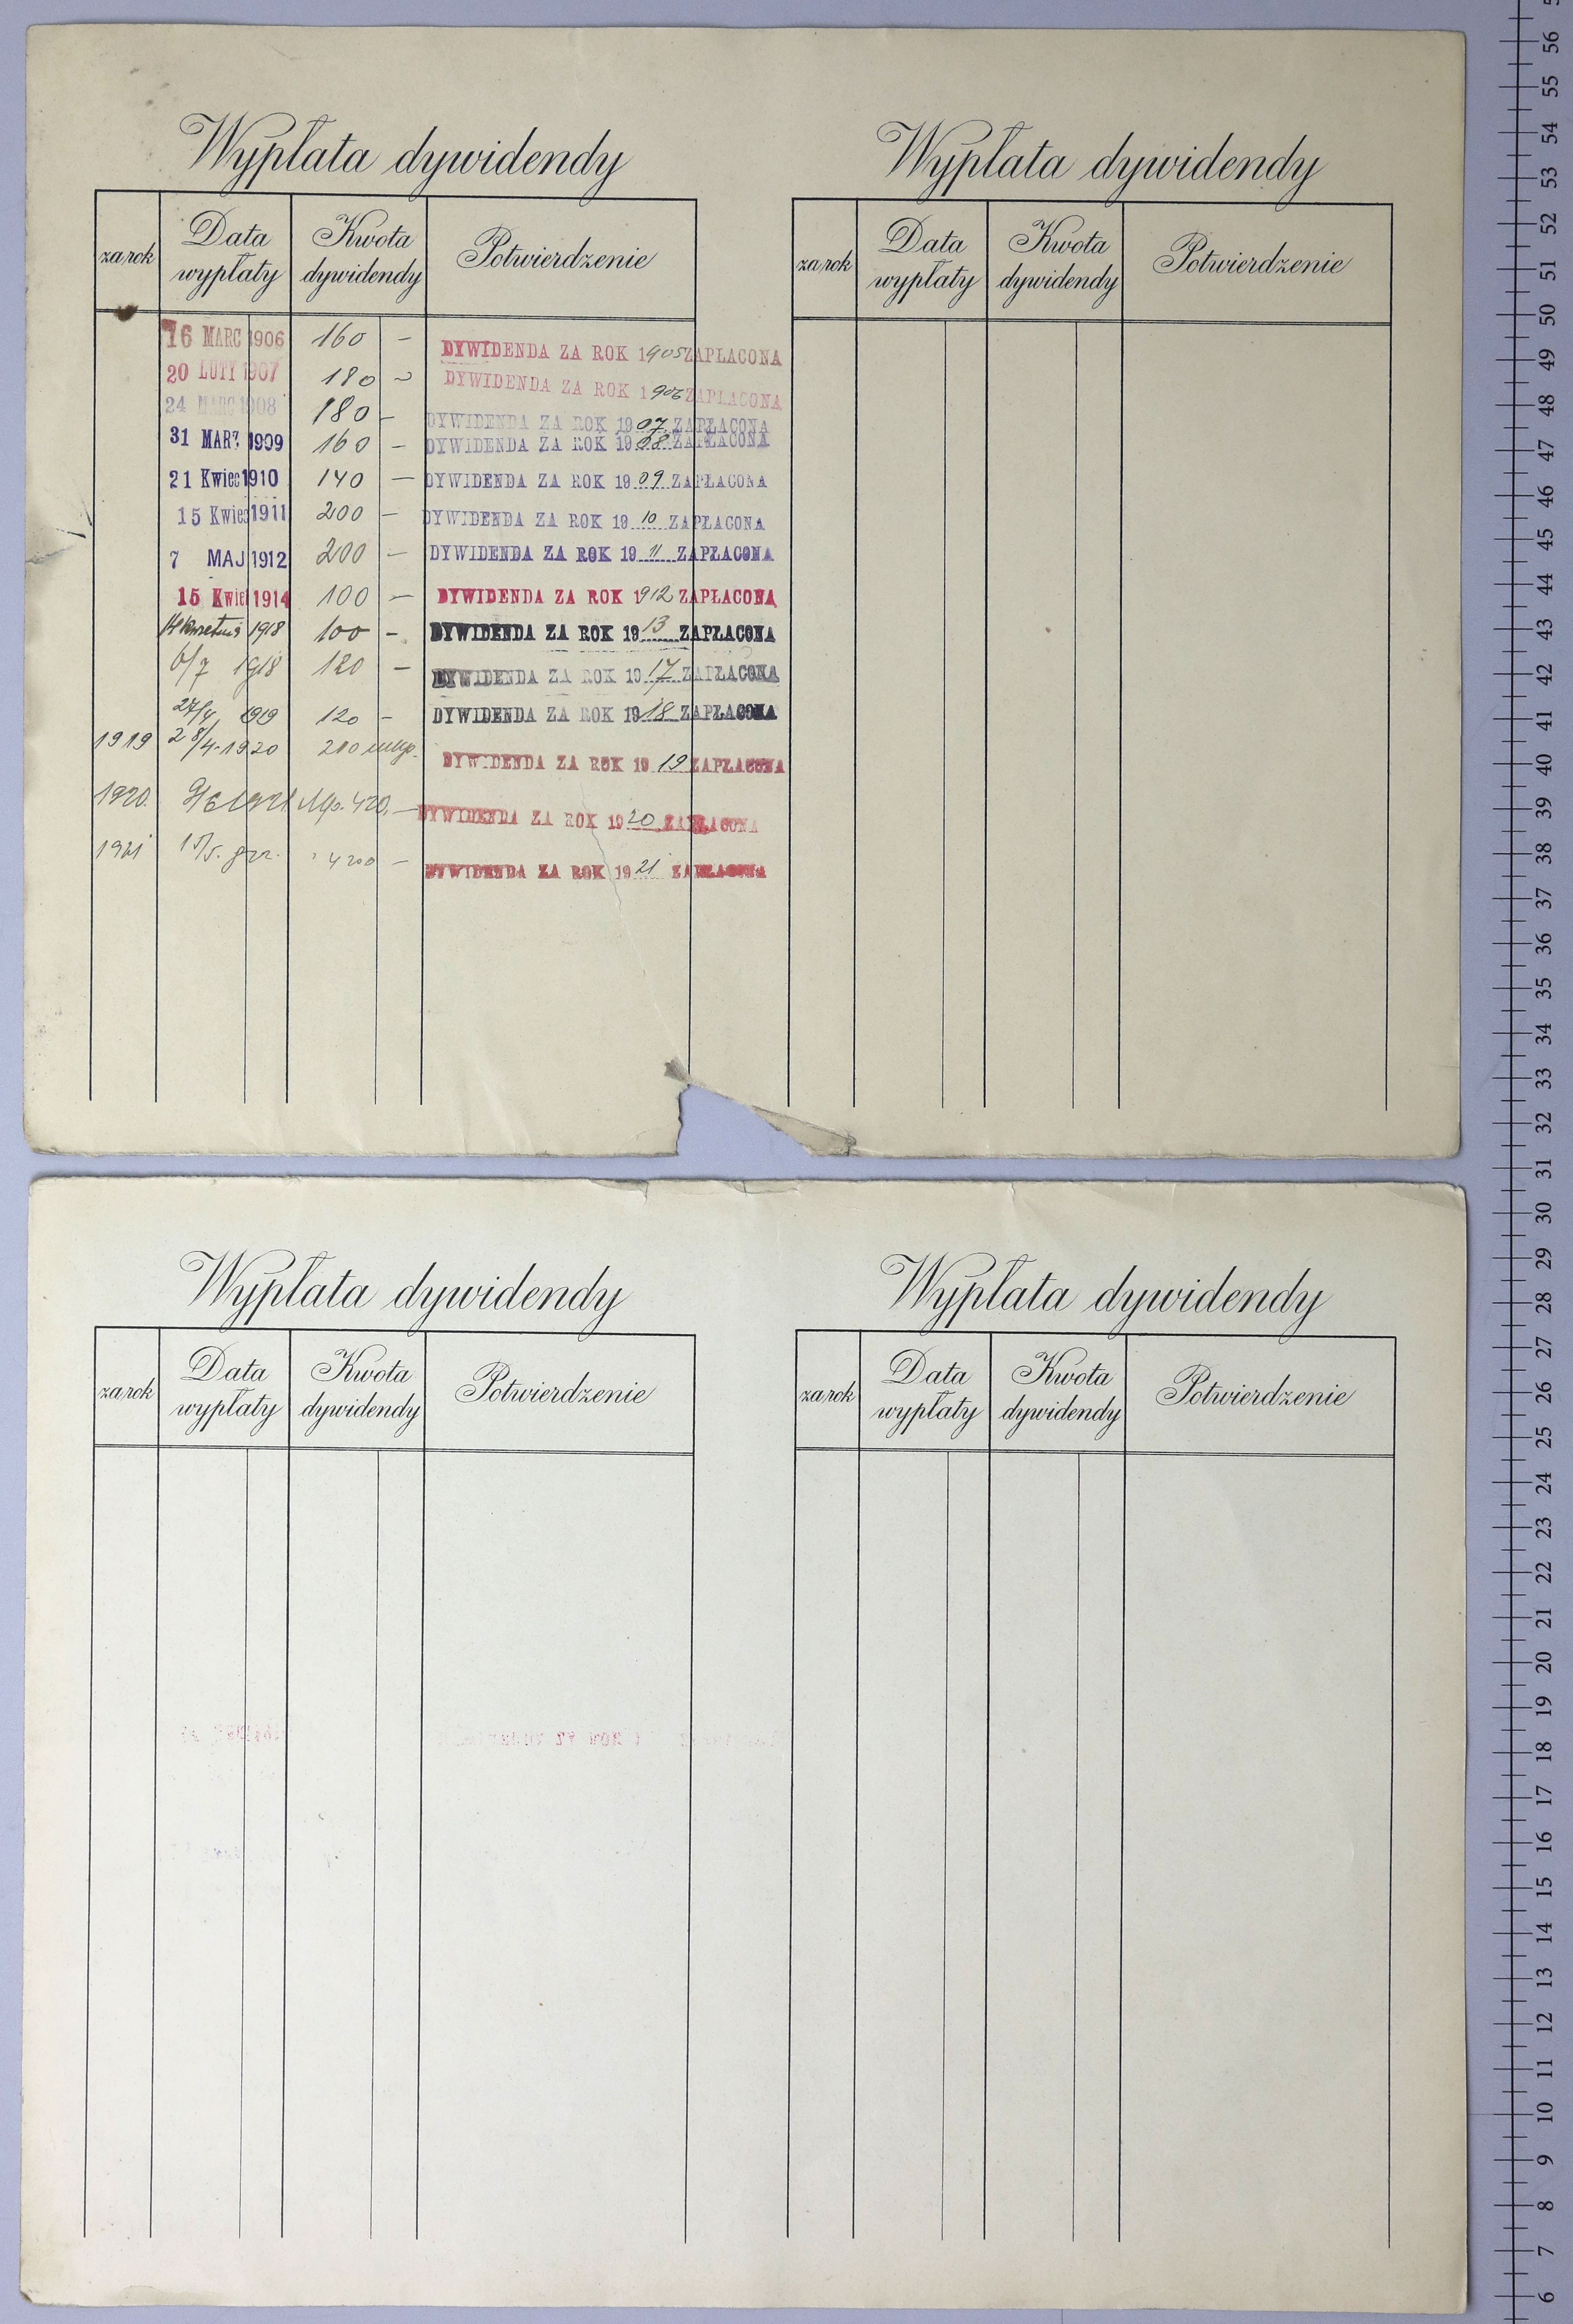 Wypłata dywidendy
za rok Data wypłaty Kwota dywidendy Potwierdzenie
16 MARC 1906 160 — DYWIDENDA ZA ROK 1905 ZAPŁACONA
20 LUTY 1907 180 — DYWIDENDA ZA ROK 1906 ZAPŁACONA
24 MARC 1908 180 — DYWIDENDA ZA ROK 1907 ZAPŁACONA
31 MARZ 1909 160 — DYWIDENDA ZA ROK 1908 ZAPŁACONA
21 Kwiec 1910 140 — DYWIDENDA ZA ROK 1909 ZAPŁACONA
15 Kwiec 1911 200 — DYWIDENDA ZA ROK 1910 ZAPŁACONA
7 MAJ 1912 200 — DYWIDENDA ZA ROK 1911 ZAPŁACONA
15 Kwie 1914 100 — DYWIDENDA ZA ROK 1912 ZAPŁACONA
kwietnia 1918 100 — DYWIDENDA ZA ROK 1913 ZAPŁACONA
6/7 1918 120 — DYWIDENDA ZA ROK 1917 ZAPŁACONA
27/4 1919 120 — DYWIDENDA ZA ROK 1918 ZAPŁACONA
1919 28/4.1920 210 DYWIDENDA ZA ROK 1919 ZAPŁACONA
1920. 9/6 1921 Mp. 420.— DYWIDENDA ZA ROK 1920 ZAPŁACONA
1921 15/5. 4200 — DYWIDENDA ZA ROK 1921 ZAPŁACONA
Wypłata dywidendy
za rok Data wypłaty Kwota dywidendy Potwierdzenie
Wypłata dywidendy
za rok Data wypłaty Kwota dywidendy Potwierdzenie
Wypłata dywidendy
za rok Data wypłaty Kwota dywidendy Potwierdzenie
56
55
54
53
52
51
50
49
48
47
46
45
44
43
42
41
40
39
38
37
36
35
34
33
32
31
30
29
28
27
26
25
24
23
22
21
20
19
18
17
16
15
14
13
12
11
10
9
8
7
6